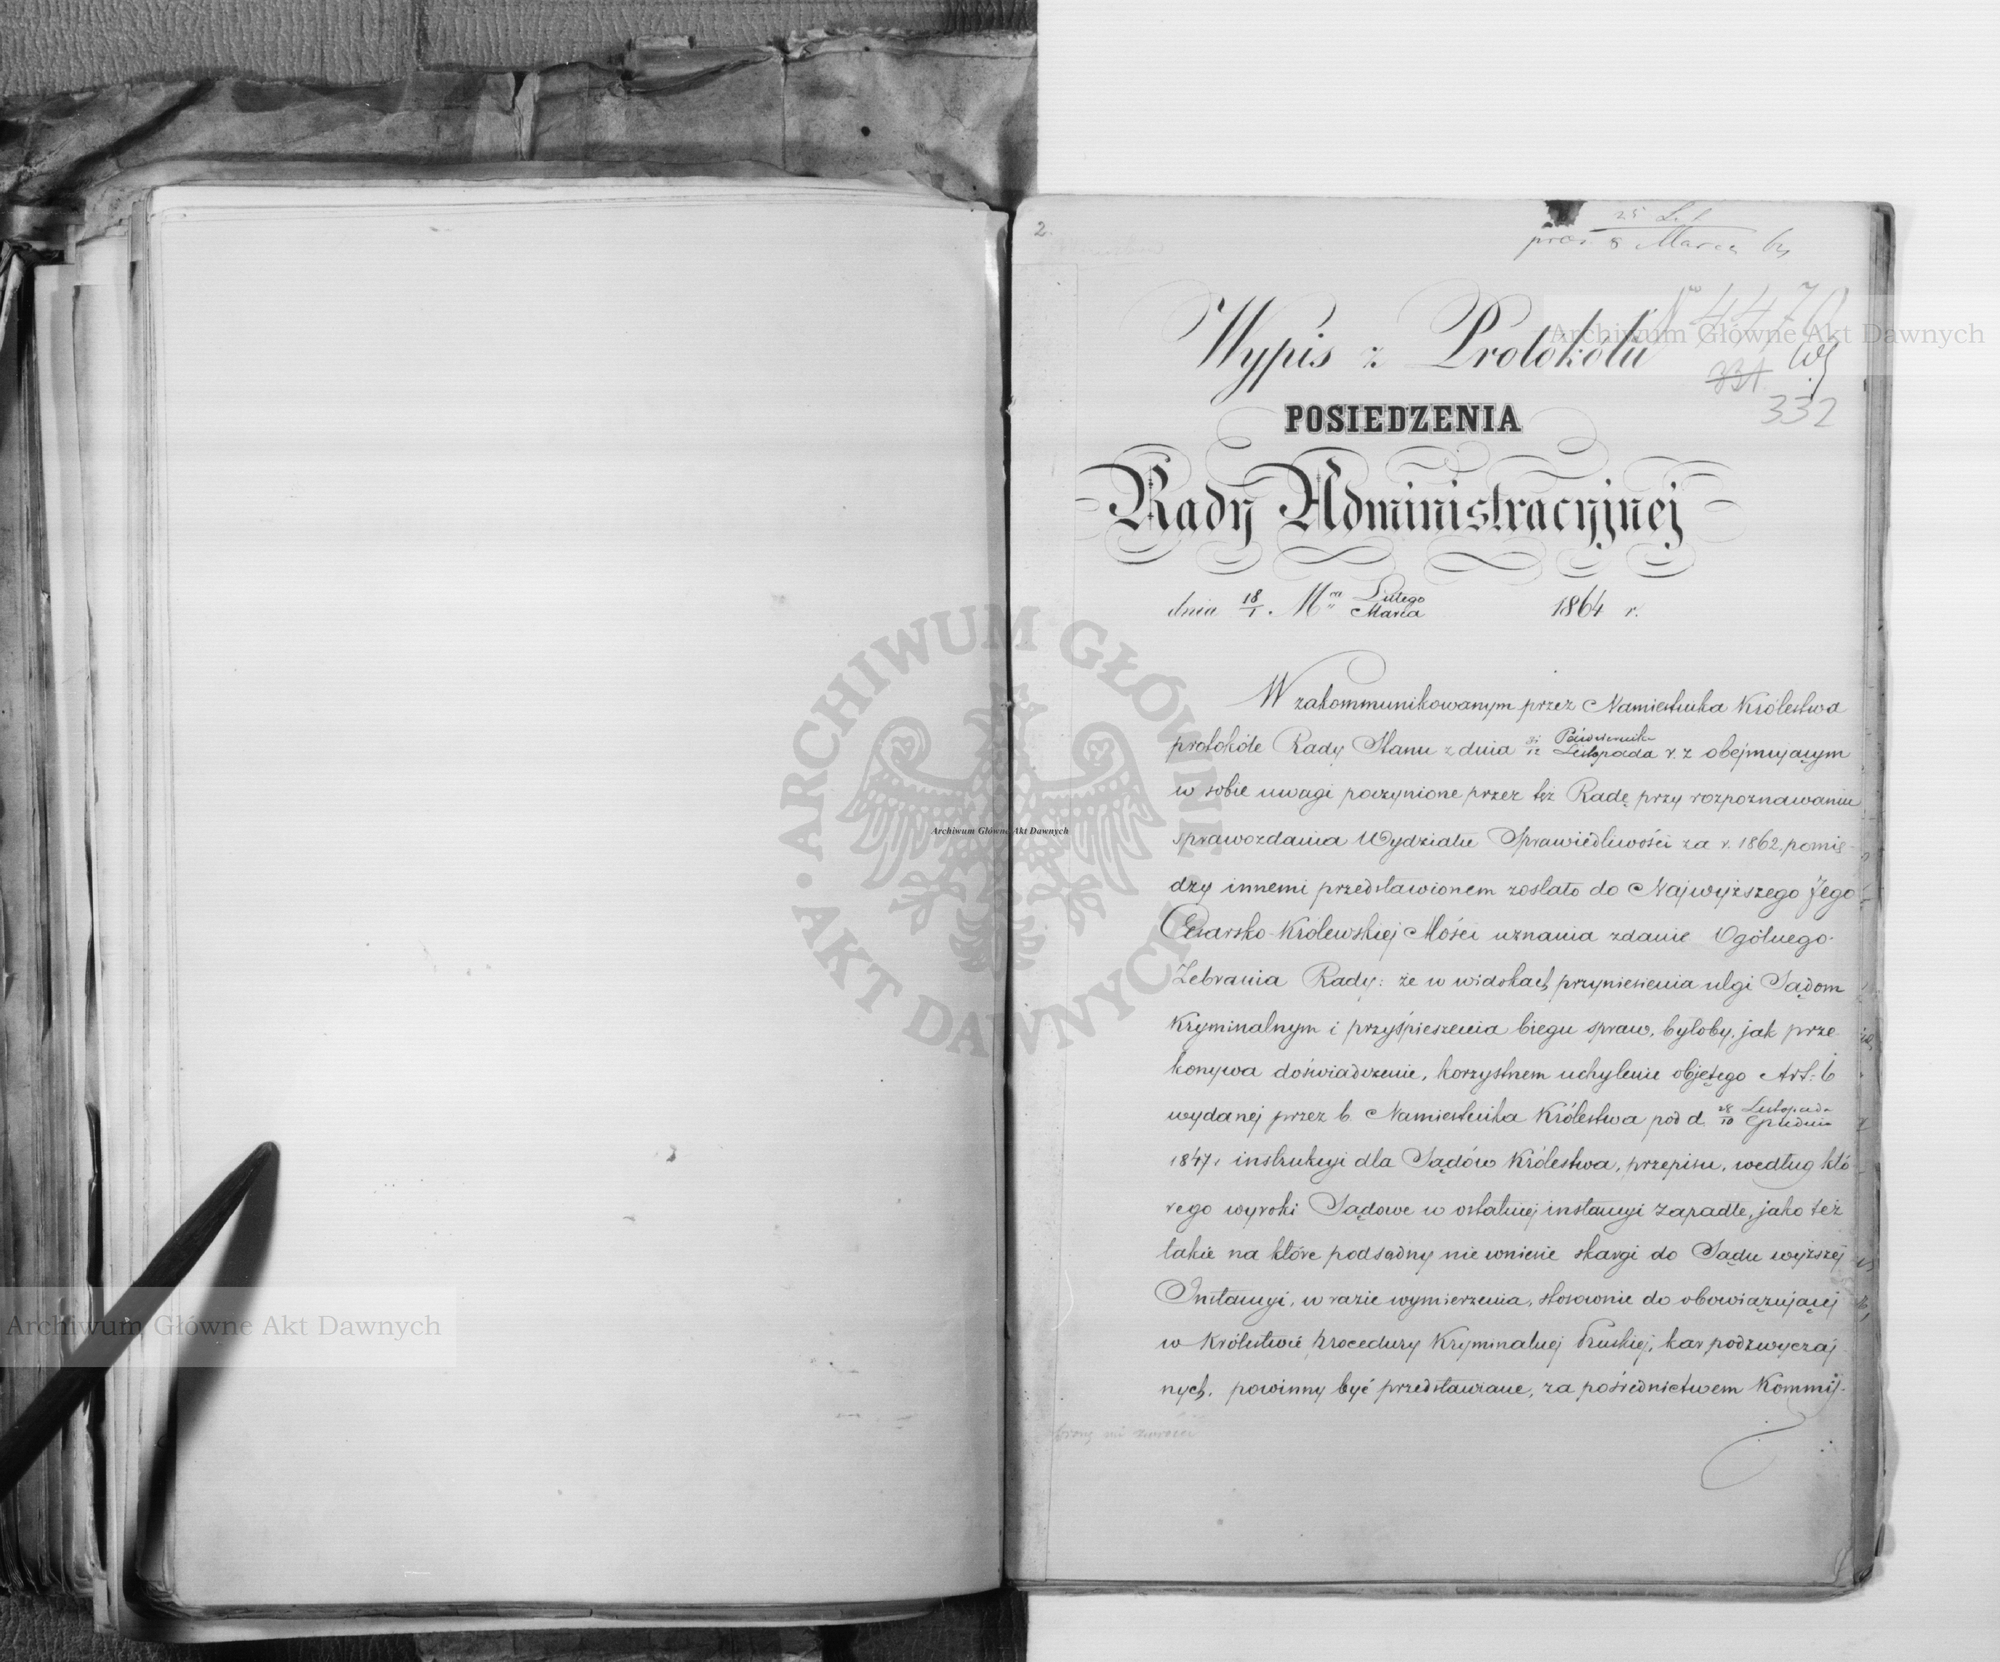 2.
25 Lut
prez. 8 Marca 64
№ 4470
331
332
Wypis z Protokółu
POSIEDZENIA
Rady Administracyjnej
dnia 18/1 Mca Lutego/Marca 1864 r.
W zakommunikowanym przez Namiestnika Królestwa
protokóle Rady Stanu z dnia 31/12 Października/Listopada r. z. obejmującym
w sobie uwagi poczynione przez też Radę przy rozpoznawaniu
sprawozdania Wydziału Sprawiedliwości za r. 1862, pomię-
dzy innemi przedstawionem zostało do Najwyższego Jego
Cesarsko-Królewskiej Mości uznania zdanie Ogólnego
Zebrania Rady: że w widokach przyniesienia ulgi Sądom
Kryminalnym i przyśpieszenia biegu spraw, byłoby, jak prze-
konywa doświadczenie, korzystnem uchylenie objętego Art: 6
wydanej przez b. Namiestnika Królestwa pod d. 28/10 Listopada/Grudnia
1847 r. instrukcyi dla Sądów Królestwa, przepisu, według któ-
rego wyroki Sądowe w ostatniej instancyi zapadłe, jako też
takie na które podsądny nie wniesie skargi do Sądu wyższej
Instancyi, w razie wymierzenia, stosownie do obowiązującej
w Królestwie procedury Kryminalnej Pruskiej, kar podzwyczaj-
nych, powinny być przedstawiane, za pośrednictwem Kommis-
Archiwum Główne Akt Dawnych
Archiwum Główne Akt Dawnych
Archiwum Główne Akt Dawnych
ARCHIWUM GŁÓWNE AKT DAWNYCH